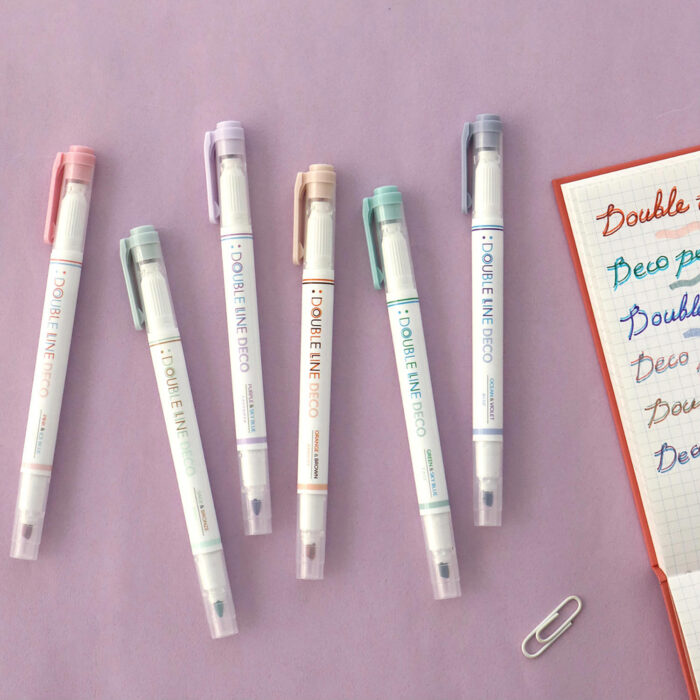 :DOUBLE LINE DECO
PINK & ICE BLUE
:DOUBLE LINE DECO
:DOUBLE LINE DECO
PURPLE & SKY BLUE
:DOUBLE LINE DECO
ORANGE & BROWN
:DOUBLE LINE DECO
GREEN & SKY BLUE
:DOUBLE LINE DECO
OCEAN & VIOLET
Double
Deco pe
Double
Deco
Dou
Deco